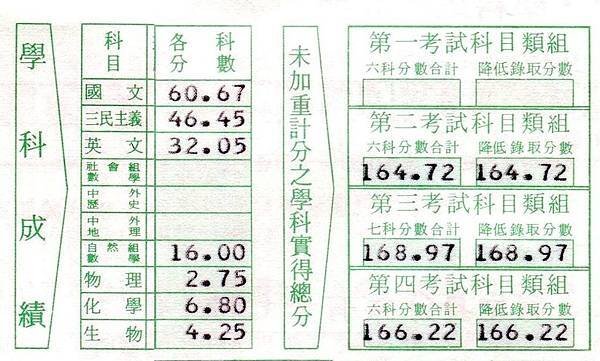 學科成績
科目 各科分數
國文 60.67
三民主義 46.45
英文 32.05
社會組數學
中外歷史
中外地理
自然組數學 16.00
物理 2.75
化學 6.80
生物 4.25
未加重計分之學科實得總分
第一考試科目類組
六科分數合計 降低錄取分數
第二考試科目類組
六科分數合計 降低錄取分數
164.72 164.72
第三考試科目類組
七科分數合計 降低錄取分數
168.97 168.97
第四考試科目類組
六科分數合計 降低錄取分數
166.22 166.22